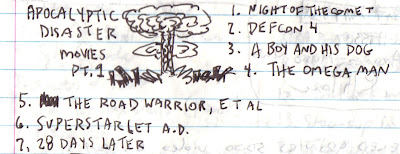 APOCALYPTIC
DISASTER
MOVIES
PT. 1
1. NIGHT OF THE COMET
2. DEFCON 4
3. A BOY AND HIS DOG
4. THE OMEGA MAN
5. THE ROAD WARRIOR, ET AL
6. SUPERSTARLET A.D.
7. 28 DAYS LATER